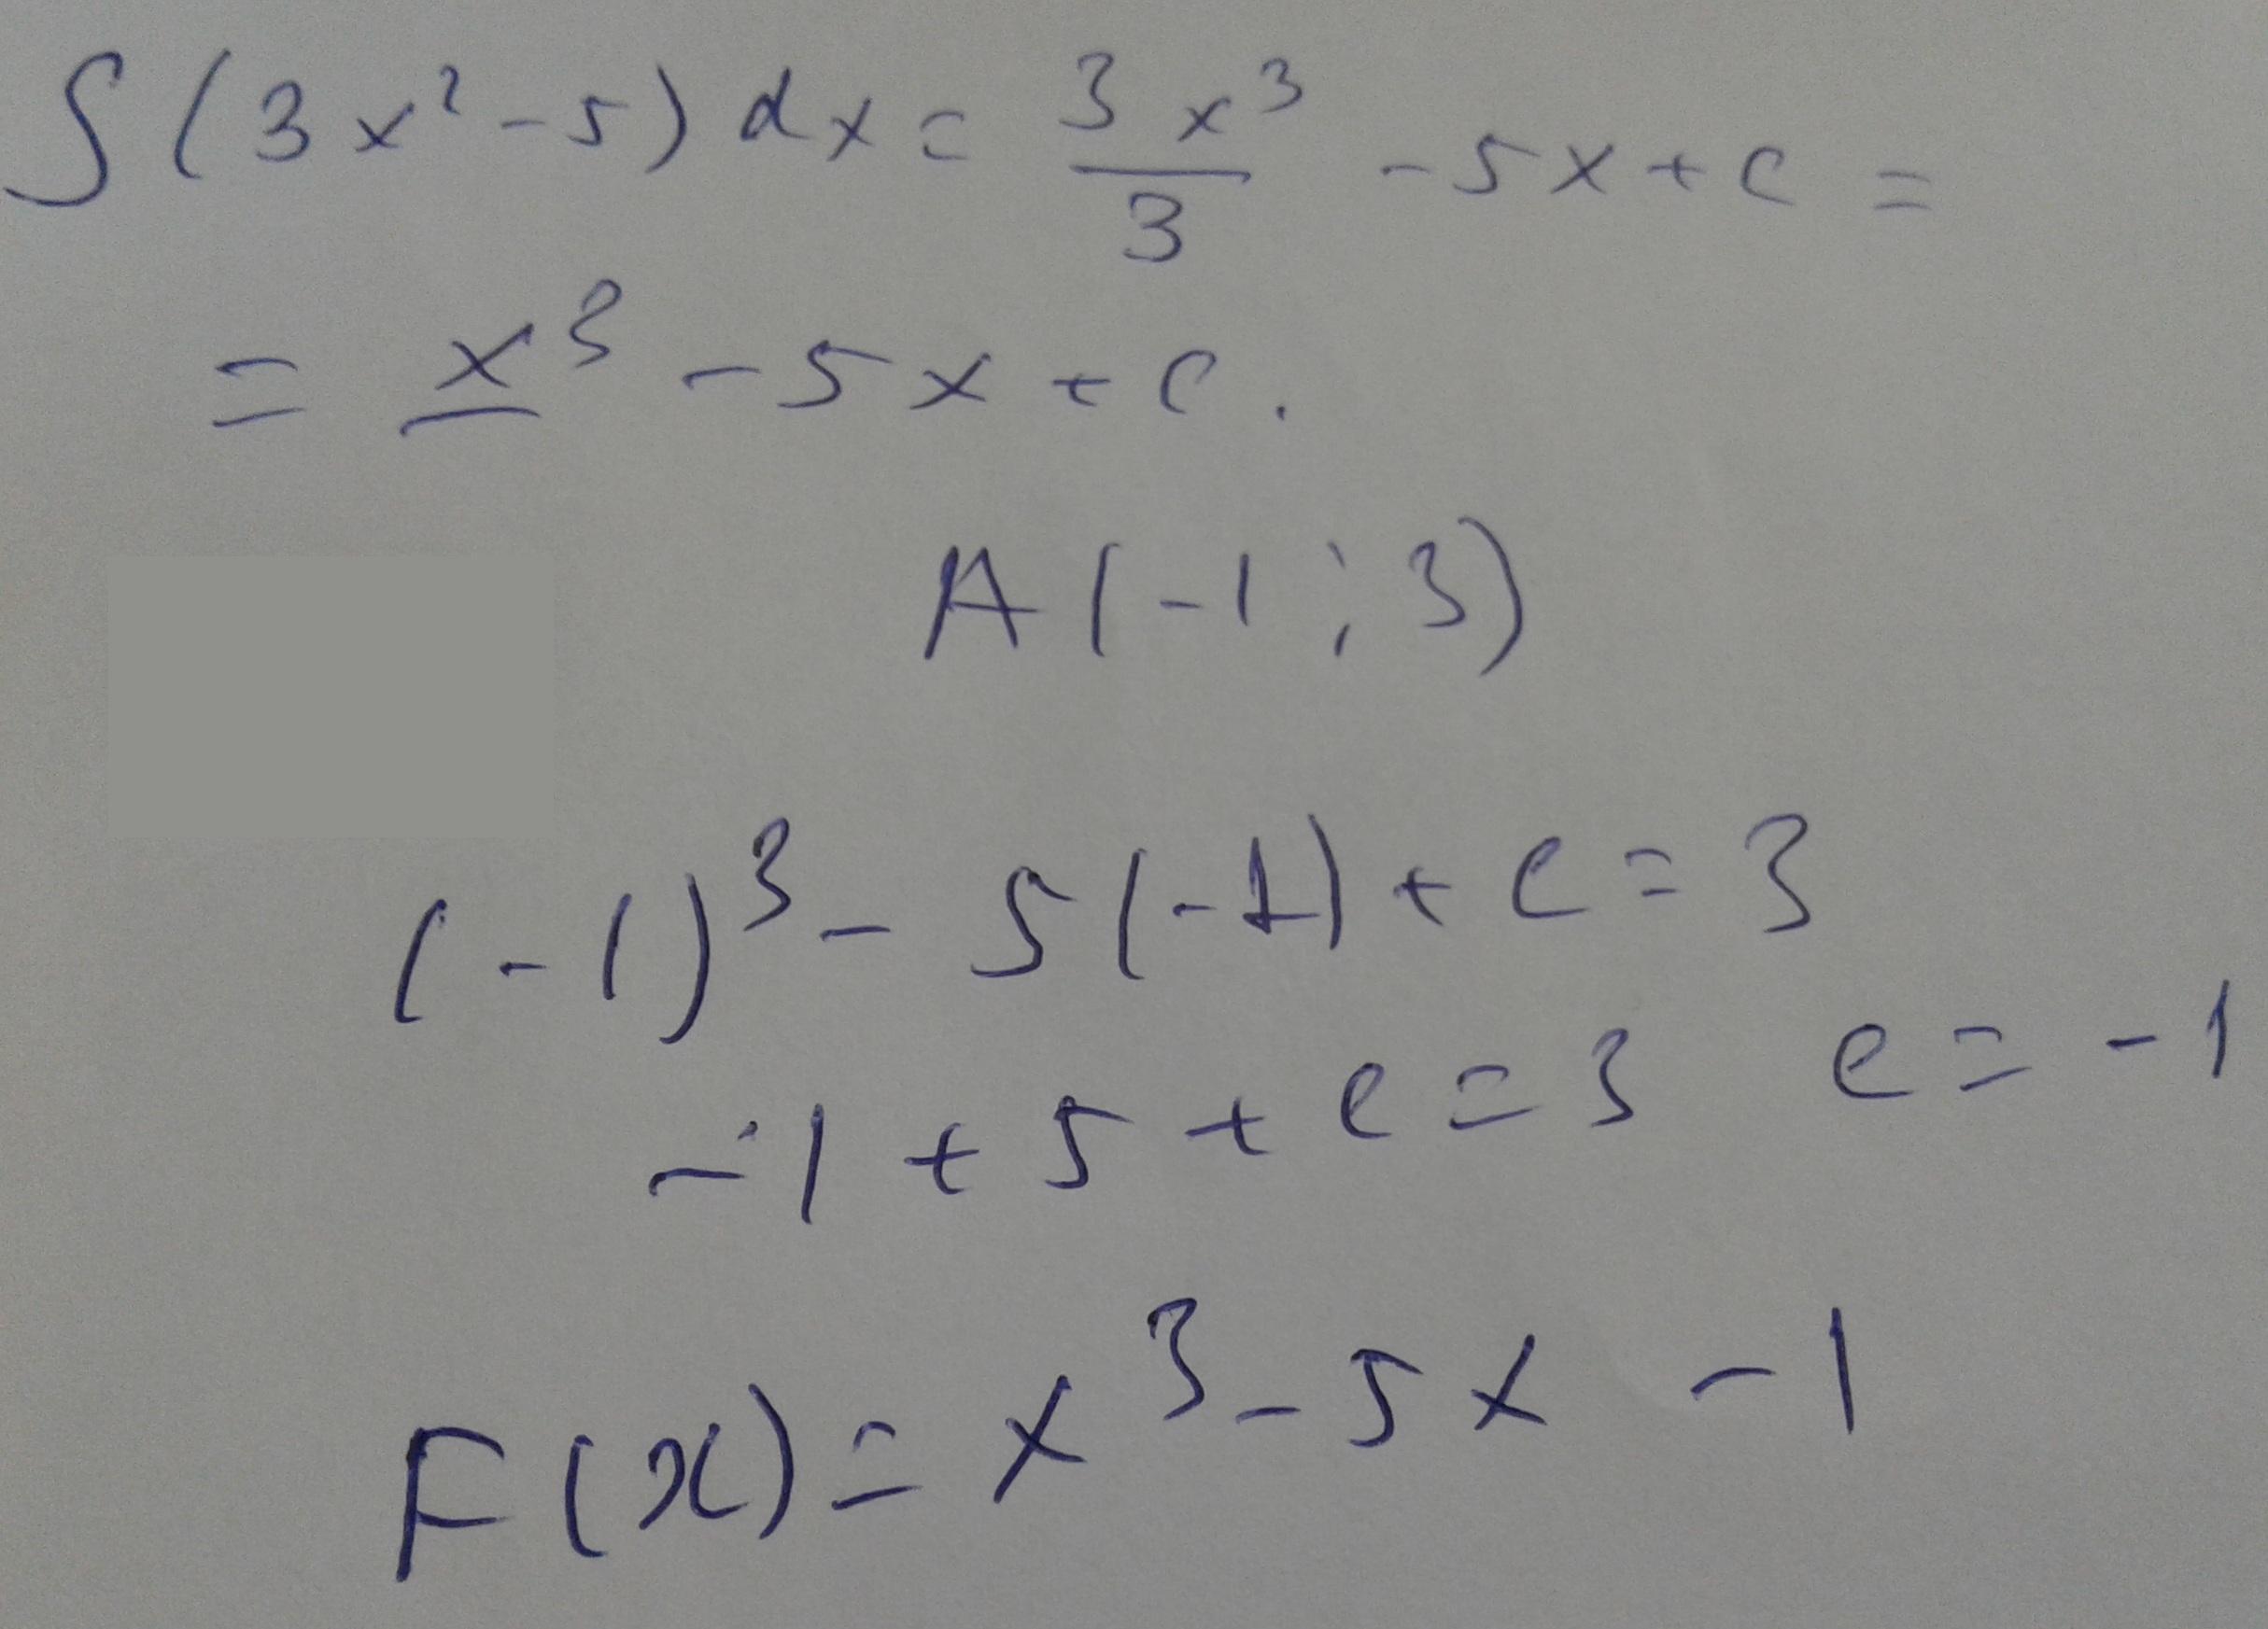 ∫(3x²-5)dx = 3x³/3 -5x+c =
= x³ -5x+c.
A(-1;3)
(-1)³- 5(-1)+c=3
-1+5+c=3 c=-1
F(x)=x³-5x-1